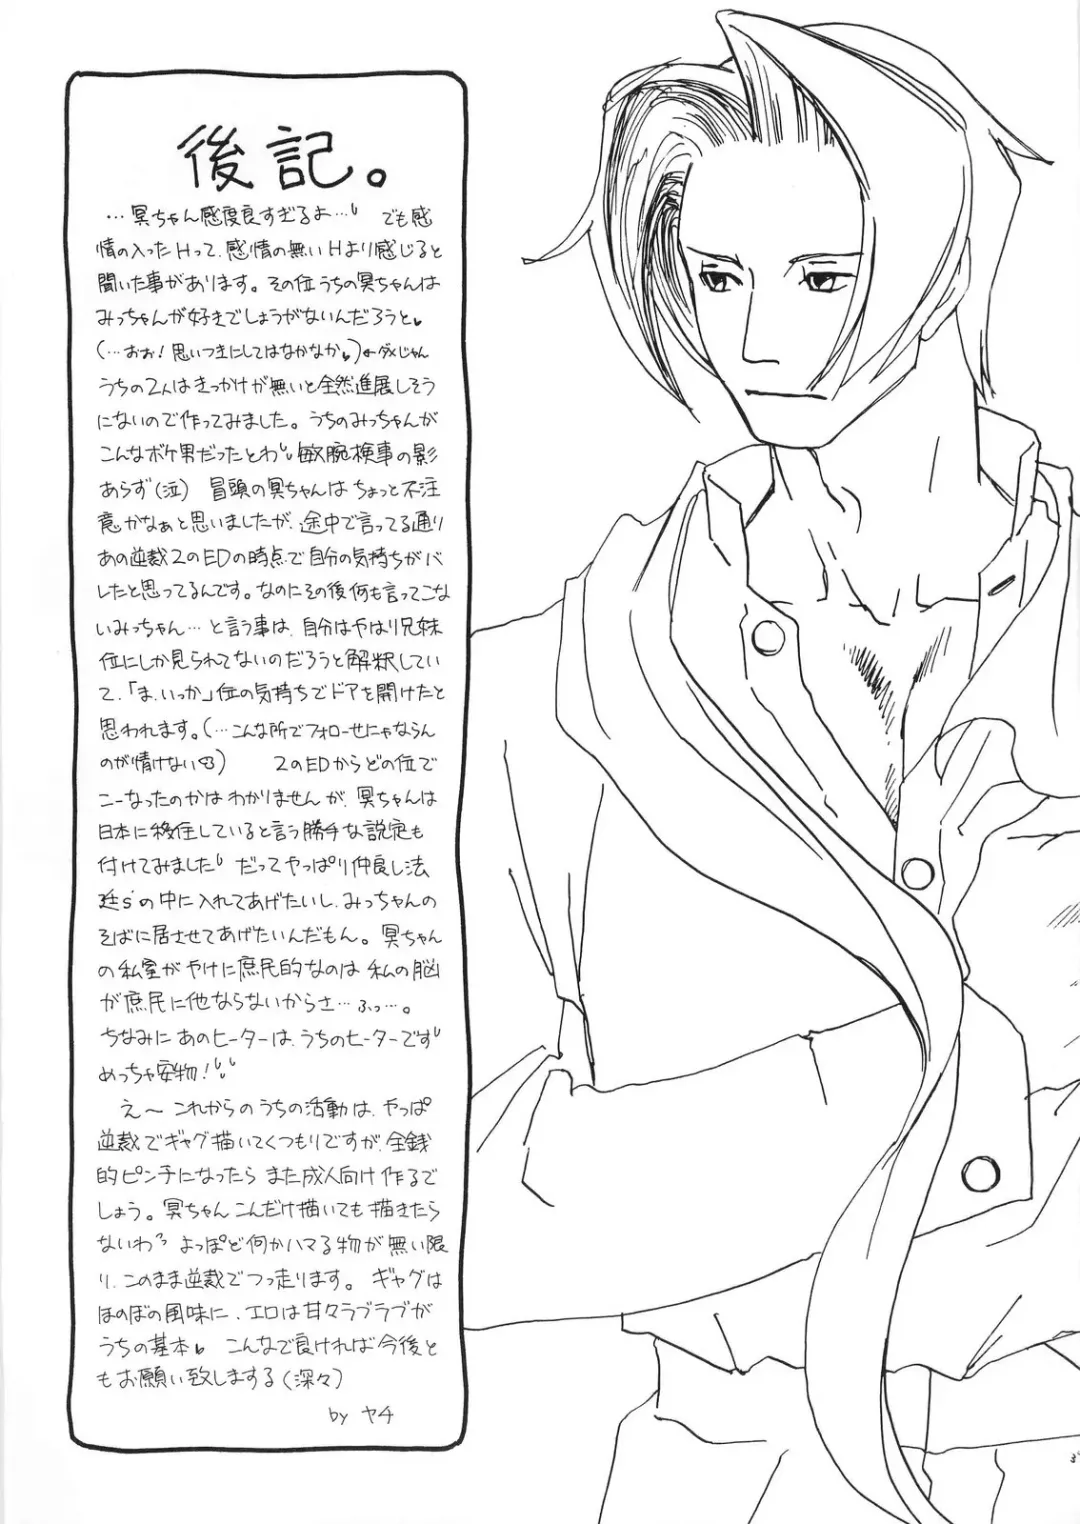 後記。
…冥ちゃん感度良すぎるよ… でも感
情の入ったHって、感情の無いHより感じると
聞いた事があります。その位うちの冥ちゃんは
みっちゃんが好きでしょうがないんだろうと
(…おお!思いつきにしてはなかなか)←ダメじゃん
うちの2人はきっかけが無いと全然進展しそう
にないので作ってみました。うちのみっちゃんが
こんなボケ男だったとわ 敏腕検事の影
あらず(泣) 冒頭の冥ちゃんはちょっと不注
意かなぁと思いましたが、途中で言ってる通り
あの逆裁2のEDの時点で自分の気持ちがバ
レたと思ってるんです。なのにその後何も言ってこな
いみっちゃん…と言う事は、自分はやはり兄妹
位にしか見られてないのだろうと解釈してい
て、「ま、いっか」位の気持ちでドアを開けたと
思われます。(…こんな所でフォローせにゃならん
のが情けない) 2のEDからどの位で
こーなったのかはわかりませんが、冥ちゃんは
日本に移住していると言う勝手な設定も
付けてみました だってやっぱり仲良し法
廷s'の中に入れてあげたいし、みっちゃんの
そばに居させてあげたいんだもん。冥ちゃん
の私室がやけに庶民的なのは私の脳
が庶民に他ならないからさ…ふっ…。
ちなみにあのヒーターは、うちのヒーターです
めっちゃ安物!
え〜これからのうちの活動は、やっぱ
逆裁でギャグ描いてくつもりですが、金銭
的ピンチになったらまた成人向け作るで
しょう。冥ちゃんこんだけ描いても描きたら
ないわ よっぽど何かハマる物が無い限
り、このまま逆裁でつっ走ります。ギャグは
ほのぼの風味に、エロは甘々ラブラブが
うちの基本 こんなで良ければ今後と
もお願い致しまする(深々)
by ヤチ